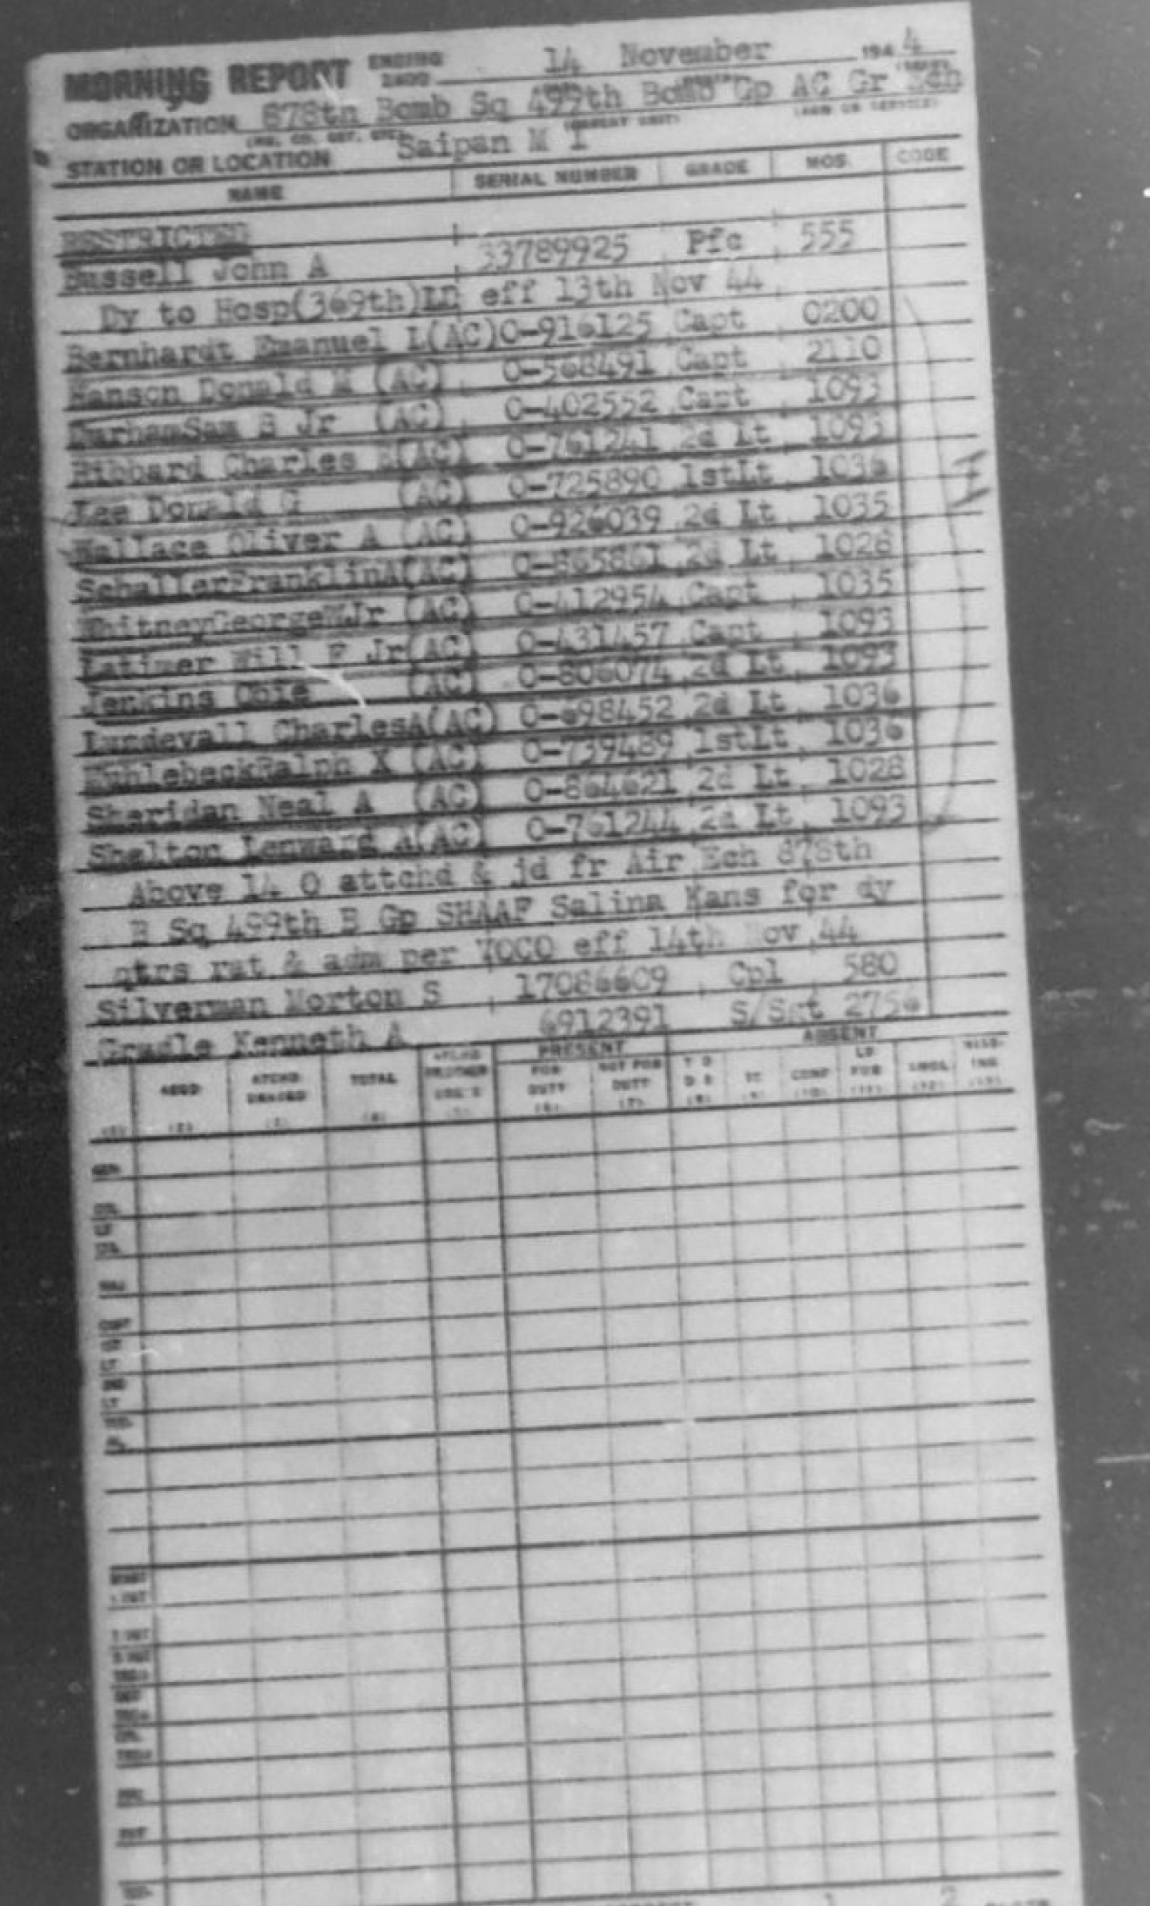 MORNING REPORT ENDING 2400 14 November 1944
ORGANIZATION 878th Bomb Sq 499th Bomb Gp AC Gr Ech
STATION OR LOCATION Saipan M I
NAME SERIAL NUMBER GRADE MOS. CODE
RESTRICTED
Bussell John A 33789925 Pfc 555
Dy to Hosp(369th)LD eff 13th Nov 44
Bernhardt Emanuel L(AC)O-916125 Capt 0200
Hanson Donald M (AC) O-568491 Capt 2110
DurhamSam B Jr (AC) O-402552 Capt 1093
Hibbard Charles E(AC) O-761241 2d Lt 1093
Lee Donald G (AC) O-725890 1stLt 1036
Wallace Oliver A (AC) O-926039 2d Lt 1035
SchallerFranklinA(AC) O-865861 2d Lt 1028
WhitneyGeorgeWJr (AC) O-412954 Capt 1035
Latimer Will F Jr(AC) O-431457 Capt 1093
Jenkins Obie (AC) O-806074 2d Lt 1093
Lundevall CharlesA(AC) O-698452 2d Lt 1036
MuhlebeckRalph X (AC) O-739489 1stLt 1036
Sheridan Neal A (AC) O-864621 2d Lt 1028
Shelton Lenward A(AC) O-761244 2d Lt 1093
Above 14 O attchd & jd fr Air Ech 878th
B Sq 499th B Gp SHAAF Salina Kans for dy
qtrs rat & adm per VOCO eff 14th Nov 44
Silverman Morton S 17086609 Cpl 580
Gradle Kenneth A 6912391 S/Sgt 2756
PRESENT ABSENT
ASGD ATCHD TOTAL FOR DUTY NOT FOR DUTY
1 2